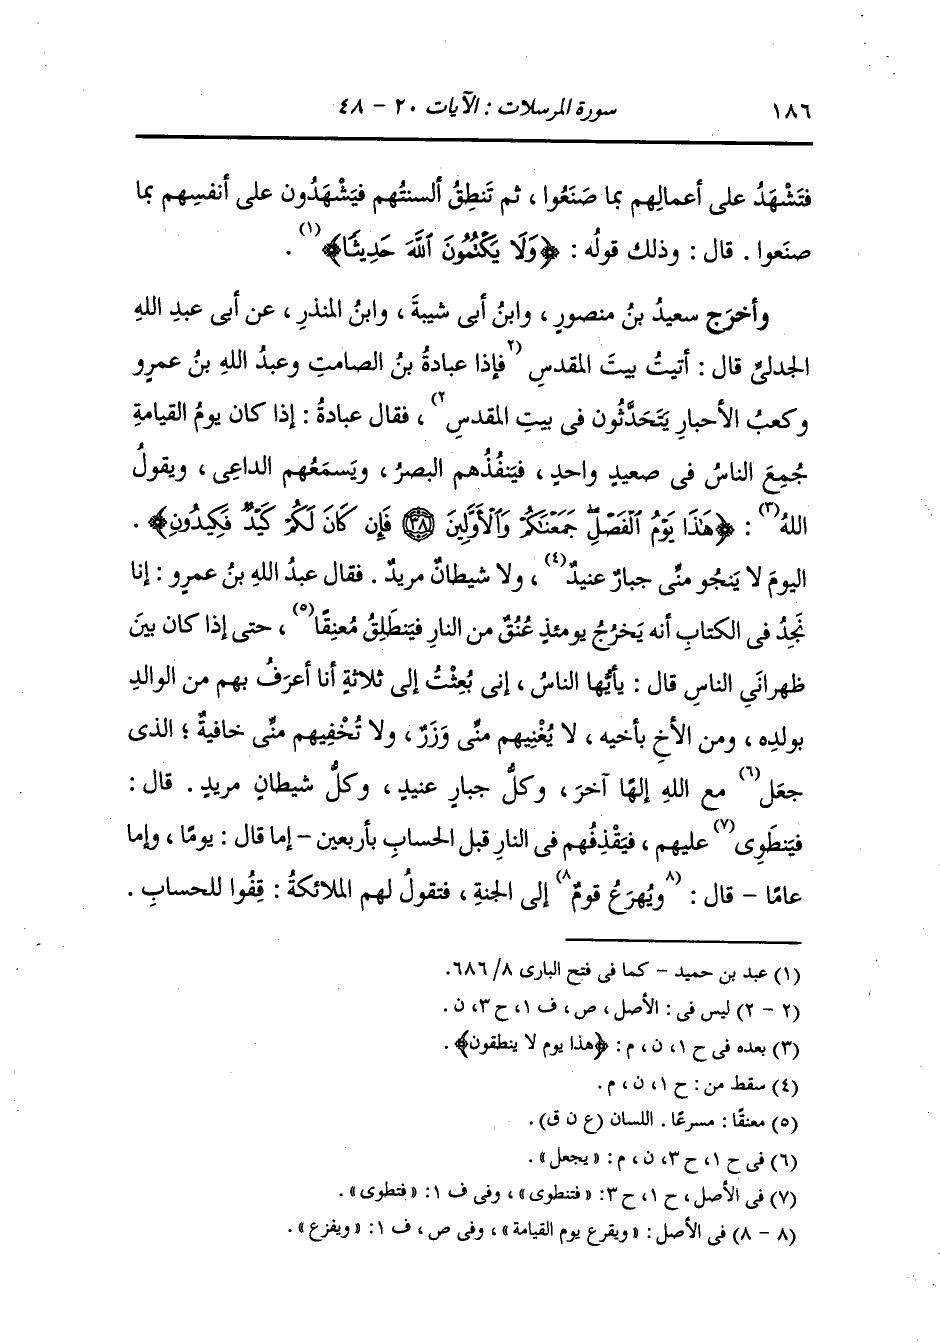 ١٨٦ سورة المرسلات : الآيات ٢٠ - ٤٨
فتَشْهَدُ على أعمالِهم بما صَنَعُوا ، ثم تَنطِقُ ألسنتُهم فيَشْهَدُون على أنفسِهم بما
صنَعوا . قال : وذلك قولُه : ﴿وَلَا يَكْتُمُونَ ٱللَّهَ حَدِيثًا﴾(١) .
وأخرَج سعيدُ بنُ منصورٍ ، وابنُ أبى شيبةَ ، وابنُ المنذرِ ، عن أبى عبدِ اللهِ
الجدلىِّ قال : أتيتُ بيتَ المقدسِ (٢فإذا عبادةُ بنُ الصامتِ وعبدُ اللهِ بنُ عمرٍو
وكعبُ الأحبارِ يَتَحَدَّثُون فى بيتِ المقدسِ٢) ، فقال عبادةُ : إذا كان يومُ القيامةِ
جُمِعَ الناسُ فى صعيدٍ واحدٍ ، فيَنفُذُهم البصرُ ، ويَسمَعُهم الداعِى ، ويقولُ
اللهُ(٣) : ﴿هَٰذَا يَوْمُ ٱلْفَصْلِۖ جَمَعْنَٰكُمْ وَٱلْأَوَّلِينَ ﴿٣٨﴾ فَإِن كَانَ لَكُمْ كَيْدٌ فَكِيدُونِ﴾ .
اليومَ لا يَنجُو منِّى جبارٌ عنيدٌ(٤) ، ولا شيطانٌ مريدٌ . فقال عبدُ اللهِ بنُ عمرٍو : إنا
نَجِدُ فى الكتابِ أنه يَخرُجُ يومئذٍ عُنُقٌ من النارِ فيَنطَلِقُ مُعنِقًا(٥) ، حتى إذا كان بينَ
ظهرانَىِ الناسِ قال : يأيُّها الناسُ ، إنى بُعِثْتُ إلى ثلاثةٍ أنا أعرَفُ بهم من الوالدِ
بولدِه ، ومن الأخِ بأخيه ، لا يُغْنِيهم منِّى وَزَرٌ ، ولا تُخْفِيهم منِّى خافيةٌ ؛ الذى
جعَل(٦) مع اللهِ إلهًا آخرَ ، وكلُّ جبارٍ عنيدٍ ، وكلُّ شيطانٍ مريدٍ . قال :
فيَنطَوِى(٧) عليهم ، فيَقْذِفُهم فى النارِ قبل الحسابِ بأربعين - إما قال : يومًا ، وإما
عامًا - قال : (٨ويُهرَعُ قومٌ٨) إلى الجنةِ ، فتقولُ لهم الملائكةُ : قِفُوا للحسابِ .
(١) عبد بن حميد - كما فى فتح البارى ٨/ ٦٨٦.
(٢ - ٢) ليس فى : الأصل ، ص ، ف ١، ح ٣، ن .
(٣) بعده فى ح ١، ن ، م : ﴿هذا يوم لا ينطقون﴾ .
(٤) سقط من : ح ١، ن ، م .
(٥) معنقًا : مسرعًا . اللسان (ع ن ق) .
(٦) فى ح ١، ح ٣، ن ، م : «يجعل» .
(٧) فى الأصل ، ح ١، ح ٣: «فتنطوى» ، وفى ف ١: «فتطوى» .
(٨ - ٨) فى الأصل : «ويقرع يوم القيامة» ، وفى ص ، ف ١: «ويفزع» .